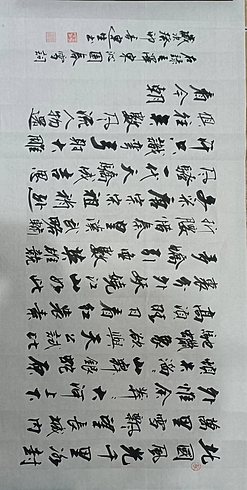 北國風光千里冰封
萬里雪飄望長城內
外惟余莽莽大河上下
頓失滔滔山舞銀蛇原
馳蠟象欲與天公試比
高須晴日看紅裝素
裹分外妖嬈江山如此
多嬌引無數英雄競
折腰惜秦皇漢武略輸
文采唐宗宋祖稍遜
風騷一代天驕成吉思
汗只識彎弓射大雕
俱往矣數風流人物還
看今朝
右錄毛澤東沁園春雪詞
歲癸卯年春